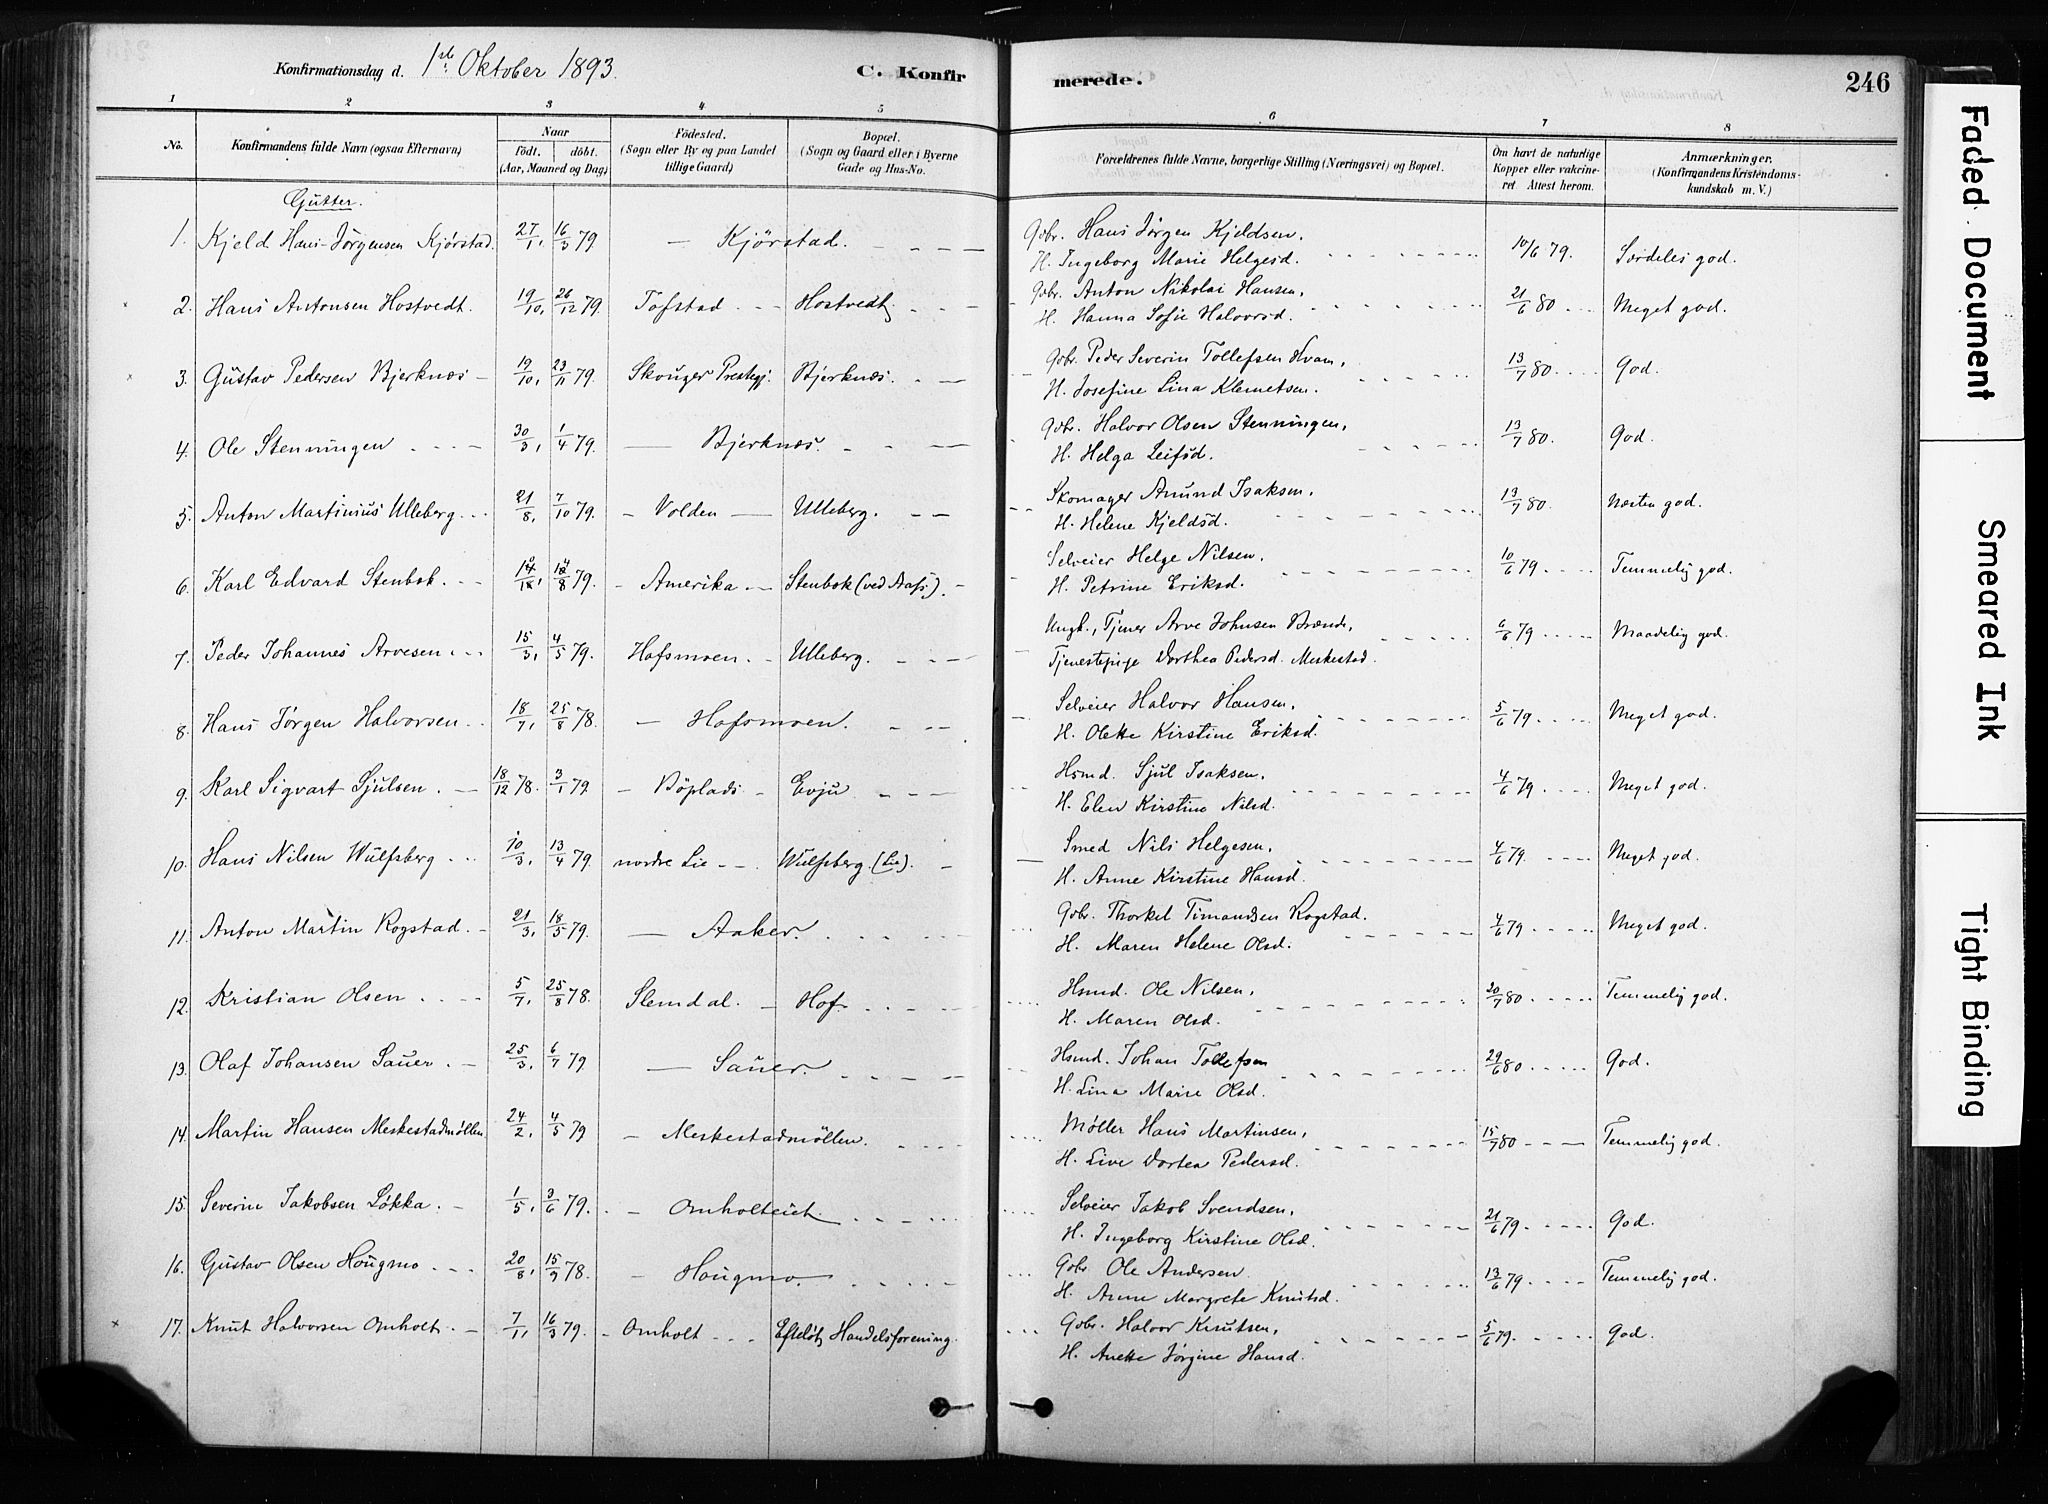 Konfirmationsdag d. 1ste Oktober 1893. C. Konfirmerede. 246
1 2 3 4 5 6 7 8
No. Konfirmandens fulde Navn (ogsaa Efternavn) Naar födt. döbt. (Aar, Maaned og Dag) Födested. (Sogn eller By og paa Landet tillige Gaard) Bopæl. (Sogn og Gaard eller i Byerne Gade og Hus-No. Forældrenes fulde Navne, borgerlige Stilling (Næringsvei) og Bopæl. Om havt de naturlige Kopper eller vakcineret Attest herom. Anmærkninger. (Konfirmandens Kristendomskundskab m. V.)
Gutter.
1. Kjeld Hans Jørgensen Kjørstad. 27/1, 16/3 79 — Kjörstad. Gbr. Hans Jørgen Kjeldsen, 10/6 79. Særdeles god.
H. Ingeborg Marie Helgesd.
2. Hans Antonsen Hostvedt. 19/10, 26/12 79. Tofstad Hostvedt Gbr. Anton Nikolai Hansen, 21/6 80 Meget god.
H. Hanna Sofie Halvorsd.
3. Gustav Pedersen Bjerknæs 19/10, 23/11 79. Skouger Prestegj. Bjerknæs. Gbr. Peder Severin Tollefsen Hvam, 13/7 80 God.
H. Josefine Lina Klemetsen.
4. Ole Stenningen 30/3, 1/4 79. — Bjerknæs. Gbr. Halvor Olsen Stenningen, 13/7 80. God.
H. Helga Leifsd.
5. Anton Martinius Ulleberg 21/8, 7/10 79. Volden — Ulleberg. Skomager Amund Isaksen, 13/7 80. Næsten god.
H. Helene Kjeldsd.
6. Karl Edvard Stenbok. 79. Amerika Stenbok (ved Aass). Selveier Helge Nilsen. 10/6 79 Temmelig god.
H. Petrine Eriksd.
7. Peder Johannes Arvesen 15/3, 4/5 79. Hofsmoen Ulleberg. Ungk., Tjener Arve Johnsen Brænde, 6/6 79 Maadelig god.
Tjenestepige Dorthea Pedersd. Meskestad.
8. Hans Jørgen Halvorsen 18/7, 25/8 78. — Hofsmoen. Selveier Halvor Hansen, 5/6 79 Meget god.
H. Olette Kirstine Eriksd.
9. Karl Sigvart Sjulsen. 18/12 78. 3/1 79 Böplads Evju Hsmd. Sjul Isaksen, 4/6 79 Meget god.
H. Elen Kirstine Nilsd.
10. Hans Nilsen Wulfsberg 10/3, 13/4 79. nordre Lie Wulfsberg (Lie). Smed Nils Helgesen, 4/6 79 Meget god.
H. Anne Kirstine Hansd.
11. Anton Martin Rogstad. 21/3, 18/5 79. — Aaker. Gbr. Thorkel Timandsen Rogstad. 4/6 79 Meget god.
H. Maren Helene Olsd.
12. Kristian Olsen 5/7, 25/8 78. Slemdal. Hof. Hsmd. Ole Nilsen, 20/7 80 Temmelig god.
H. Maren Olsd.
13. Olaf Johansen Sauer. 25/3, 6/7 79 — Sauer. Hsmd. Johan Tollefsen 29/6 80 God.
H. Lina Marie Olsd.
14. Martin Hansen Meskestadmøllen 24/2, 4/5 79 Meskestadmöllen. Møller Hans Martinsen, 15/7 80 Temmelig god.
H. Live Dortea Pedersd.
15. Severin Jakobsen Løkka. 1/5, 3/6 79. Omholteiet Selveier Jakob Svendsen, 21/6 79 God.
H. Ingeborg Kirstine Olsd.
16. Gustav Olsen Hougmo 20/8, 15/9 78. Hougmo. Gbr. Ole Andersen 13/6 79 Temmelig god.
H. Anne Margrete Knutsd.
17. Knut Halvorsen Omholt. 7/1, 16/3 79. Omholt Efteløt Handelsforening. Gbr. Halvor Knutsen, 5/6 79. God.
H. Anette Jørgine Hansd.
Faded Document
Smeared Ink
Tight Binding